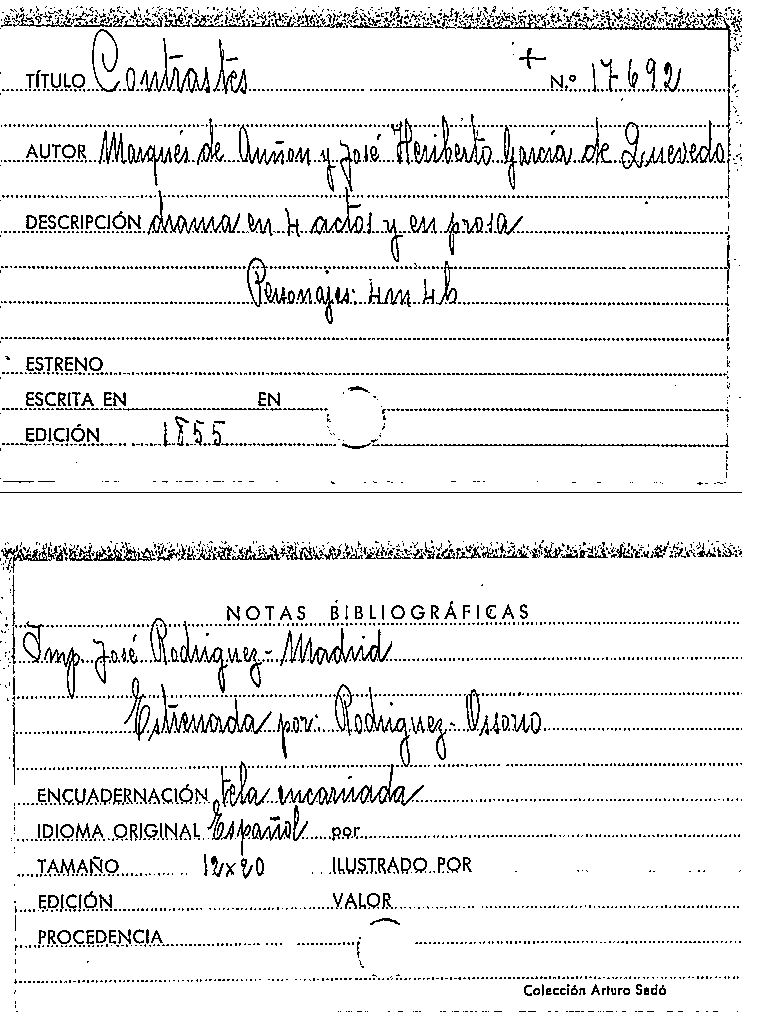 TÍTULO Contrastes + N.º 17692
AUTOR Marqués de Auñon y José Heriberto García de Quevedo
DESCRIPCIÓN drama en 4 actos y en prosa
Personajes: 4m 4h
ESTRENO
ESCRITA EN EN
EDICIÓN 1855
NOTAS BIBLIOGRÁFICAS
Imp. José Rodriguez - Madrid
Estrenada por: Rodriguez - Ossorio
ENCUADERNACIÓN tela encarnada
IDIOMA ORIGINAL Español por
TAMAÑO 12x20 ILUSTRADO POR
EDICIÓN VALOR
PROCEDENCIA
Colección Arturo Sedó